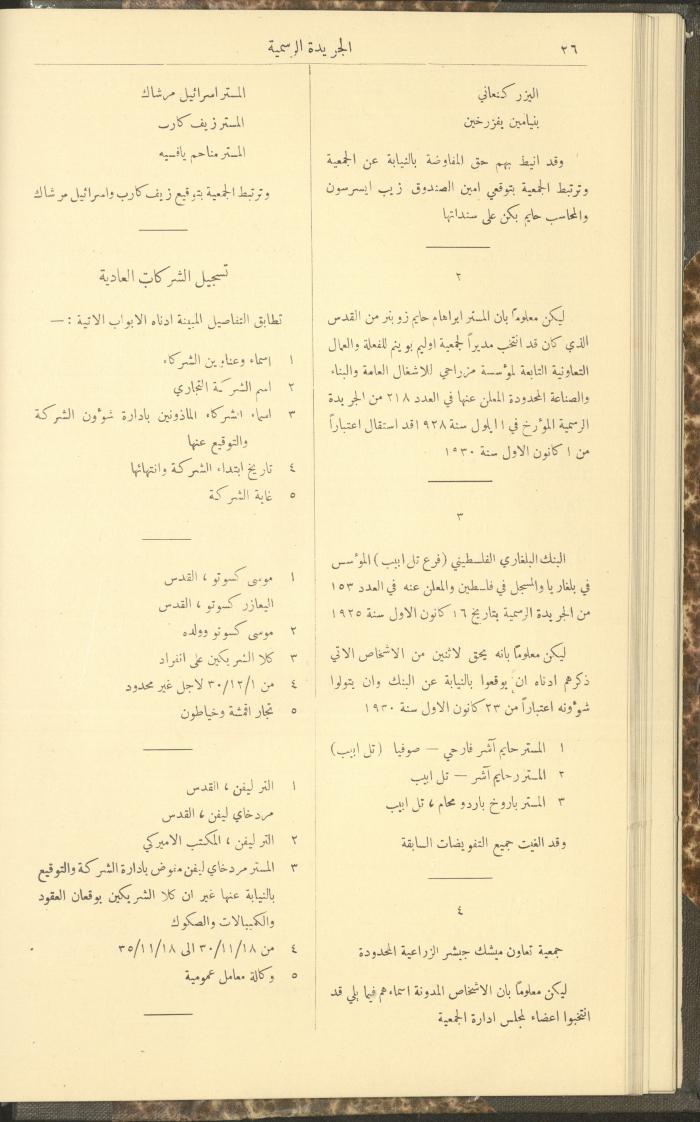 ٢٦
الجريدة الرسمية
اليزر كنعاني
بنيامين يفزرخين
وقد انيط بهم حق المفاوضة بالنيابة عن الجمعية
وترتبط الجمعية بتوقعي امين الصندوق زيب ايسرسون
والمحاسب حايم بكن على سنداتها
٢
ليكن معلوماً بان المستر ابراهام حايم زوبنر من القدس
الذي كان قد انتخب مديراً لجمعية اوليم بوينم للفعلة والعمال
التعاونية التابعة لمؤسسة مزراحي للاشغال العامة والبناء
والصناعة المحدودة المعلن عنها في العدد ٢١٨ من الجريدة
الرسمية المؤرخ في ١ ايلول سنة ٩٢٨ ١ قد استقال اعتباراً
من ١ كانون الاول سنة ١٩٣٠
٣
البنك البلغاري الفلسطيني (فرع تل ابيب) المؤسس
في بلغاريا والمسجل في فلسطين والمعلن عنه في العدد ١٥٣
من الجريدة الرسمية بتاريخ ١٦ كانون الاول سنة ١٩٢٥
ليكن معلوماً بانه يحق لاثنين من الاشخاص الاتي
ذكرهم ادناه ان يوقعوا بالنيابة عن البنك وان يتولوا
شؤونه اعتباراً من ٢٣ كانون الاول سنة ١٩٣٠
١ المستر حايم آشر فارحي — صوفيا (تل ابيب)
٢ المستر رحايم آشر — تل ابيب
٣ المستر باروخ باردو محام، تل ابيب
وقد الغيت جميع التفويضات السابقة
٤
جمعية تعاون ميشك جيشر الزراعية المحدودة
ليكن معلوماً بان الاشخاص المدونة اسماءهم فيما يلي قد
انتخبوا اعضاء لمجلس ادارة الجمعية
المستر اسرائيل مرشاك
المستر زيف كارب
المستر مناحم يافسيه
وترتبط الجمعية بتوقيع زيف كارب واسرائيل مرشاك
تسجيل الشركات العادية
تطابق التفاصيل المبينة ادناه الابواب الاتية :—
١ اسماء وعناوين الشركاء
٢ اسم الشركة التجاري
٣ اسماء الشركاء الماذونين بادارة شؤون الشركة
والتوقيع عنها
٤ تاريخ ابتداء الشركة وانتهائها
٥ غاية الشركة
١ موسى كسوتو، القدس
اليعازر كسوتو، القدس
٢ موسى كسوتو وولده
٣ كلا الشريكين على انفراد
٤ من ٣٠/١٢/١ لاجل غير محدود
٥ تجار اقمشة وخياطون
١ التر ليفن، القدس
مردخاي ليفن، القدس
٢ التر ليفن، المكتب الاميركي
٣ المستر مردخاي ليفن مفوض بادارة الشركة والتوقيع
بالنيابة عنها غير ان كلا الشريكين يوقعان العقود
والكمبيالات والصكوك
٤ من ٣٠/١١/١٨ الى ٣٥/١١/١٨
٥ وكالة معامل عمومية